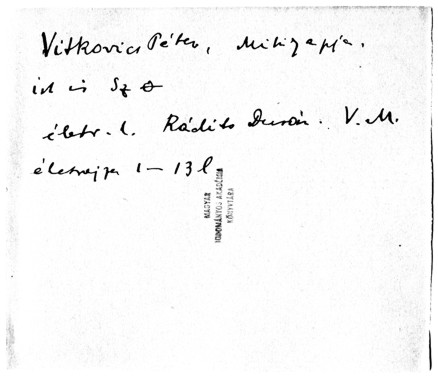 Vitkovics Péter, Mihály apja.
írt is Sz
életr. l. Rádits Dusán. V. M.
életrajza 1–13 l
MAGYAR
TUDOMÁNYOS AKADÉMIA
KÖNYVTÁRA